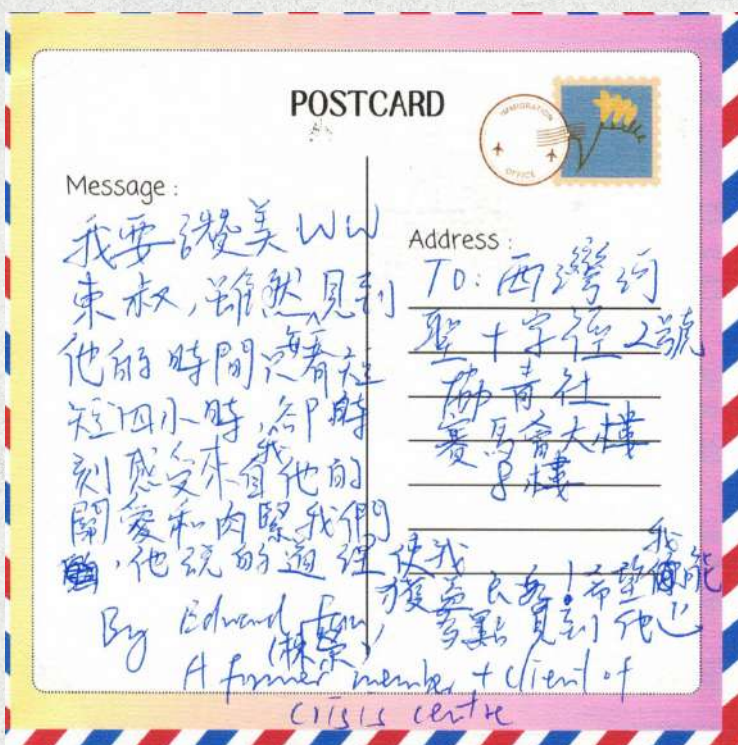 POSTCARD
IMMIGRATION
OFFICE
Message :
我要讚美WW
東叔,雖然見到
他的時間只有短
短四小時,卻時
刻感受來自他的
關愛和肉緊我們
,他說的道理使我
獲益良多!希望我能
多點見到他
By Edward
A former member + client of
crisis centre
Address :
TO: 西灣河
聖十字徑2號
協青社
賽馬會大樓
8樓